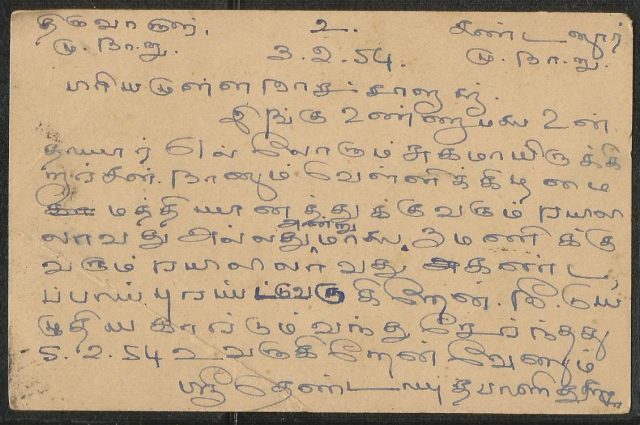 திருவாரூர். உ. கண்டனூர்
மு. நா. நு. 3.2.54. மு. நா. நு.
பிரியமுள்ள
இங்கு உண்ணாமலை உன்
தாயார் எல்லோரும் சுகமாயிருக்கி
றார்கள். நானும் வெள்ளிக்கிழமை
மத்தியானத்துக்கு வரும் ரயிலி
லாவது அல்லது அன்று மாலை 3 மணிக்கு
வரும் ரயிலிலாவது
புறப்பட்டு வருகிறேன். நீ
எழுதிய கார்டும் வந்து சேர்ந்தது
5.2.54 உ வருகிறேன் வேணும்
ஸ்ரீ தெண்டாயுதபாணி துணை